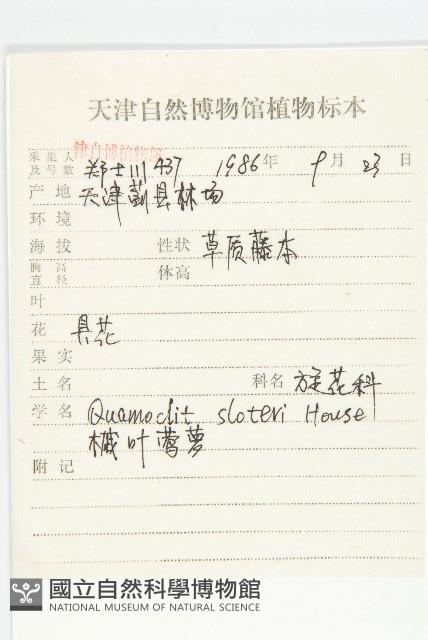 天津自然博物馆植物标本
采集人及号数 郑士川 437 1986年 9月 23日
产地 天津蓟县林场
环境
海拔 性状 草质藤本
胸高直径 体高
叶
花 具花
果实
土名 科名 旋花科
学名 Quamoclit sloteri House
槭叶茑萝
附记
國立自然科學博物館
NATIONAL MUSEUM OF NATURAL SCIENCE